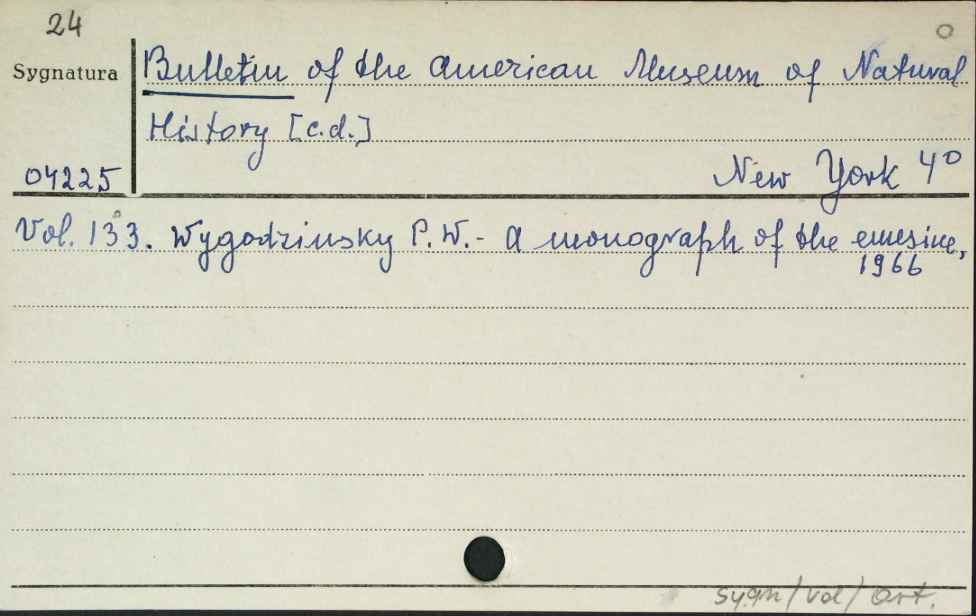 24
Sygnatura
Bulletin of the American Museum of Natural
History [c.d.]
04225
New York 4°
Vol. 133. Wygodzinsky P.W.- A monograph of the emesine,
1966
sygn/vol/art.